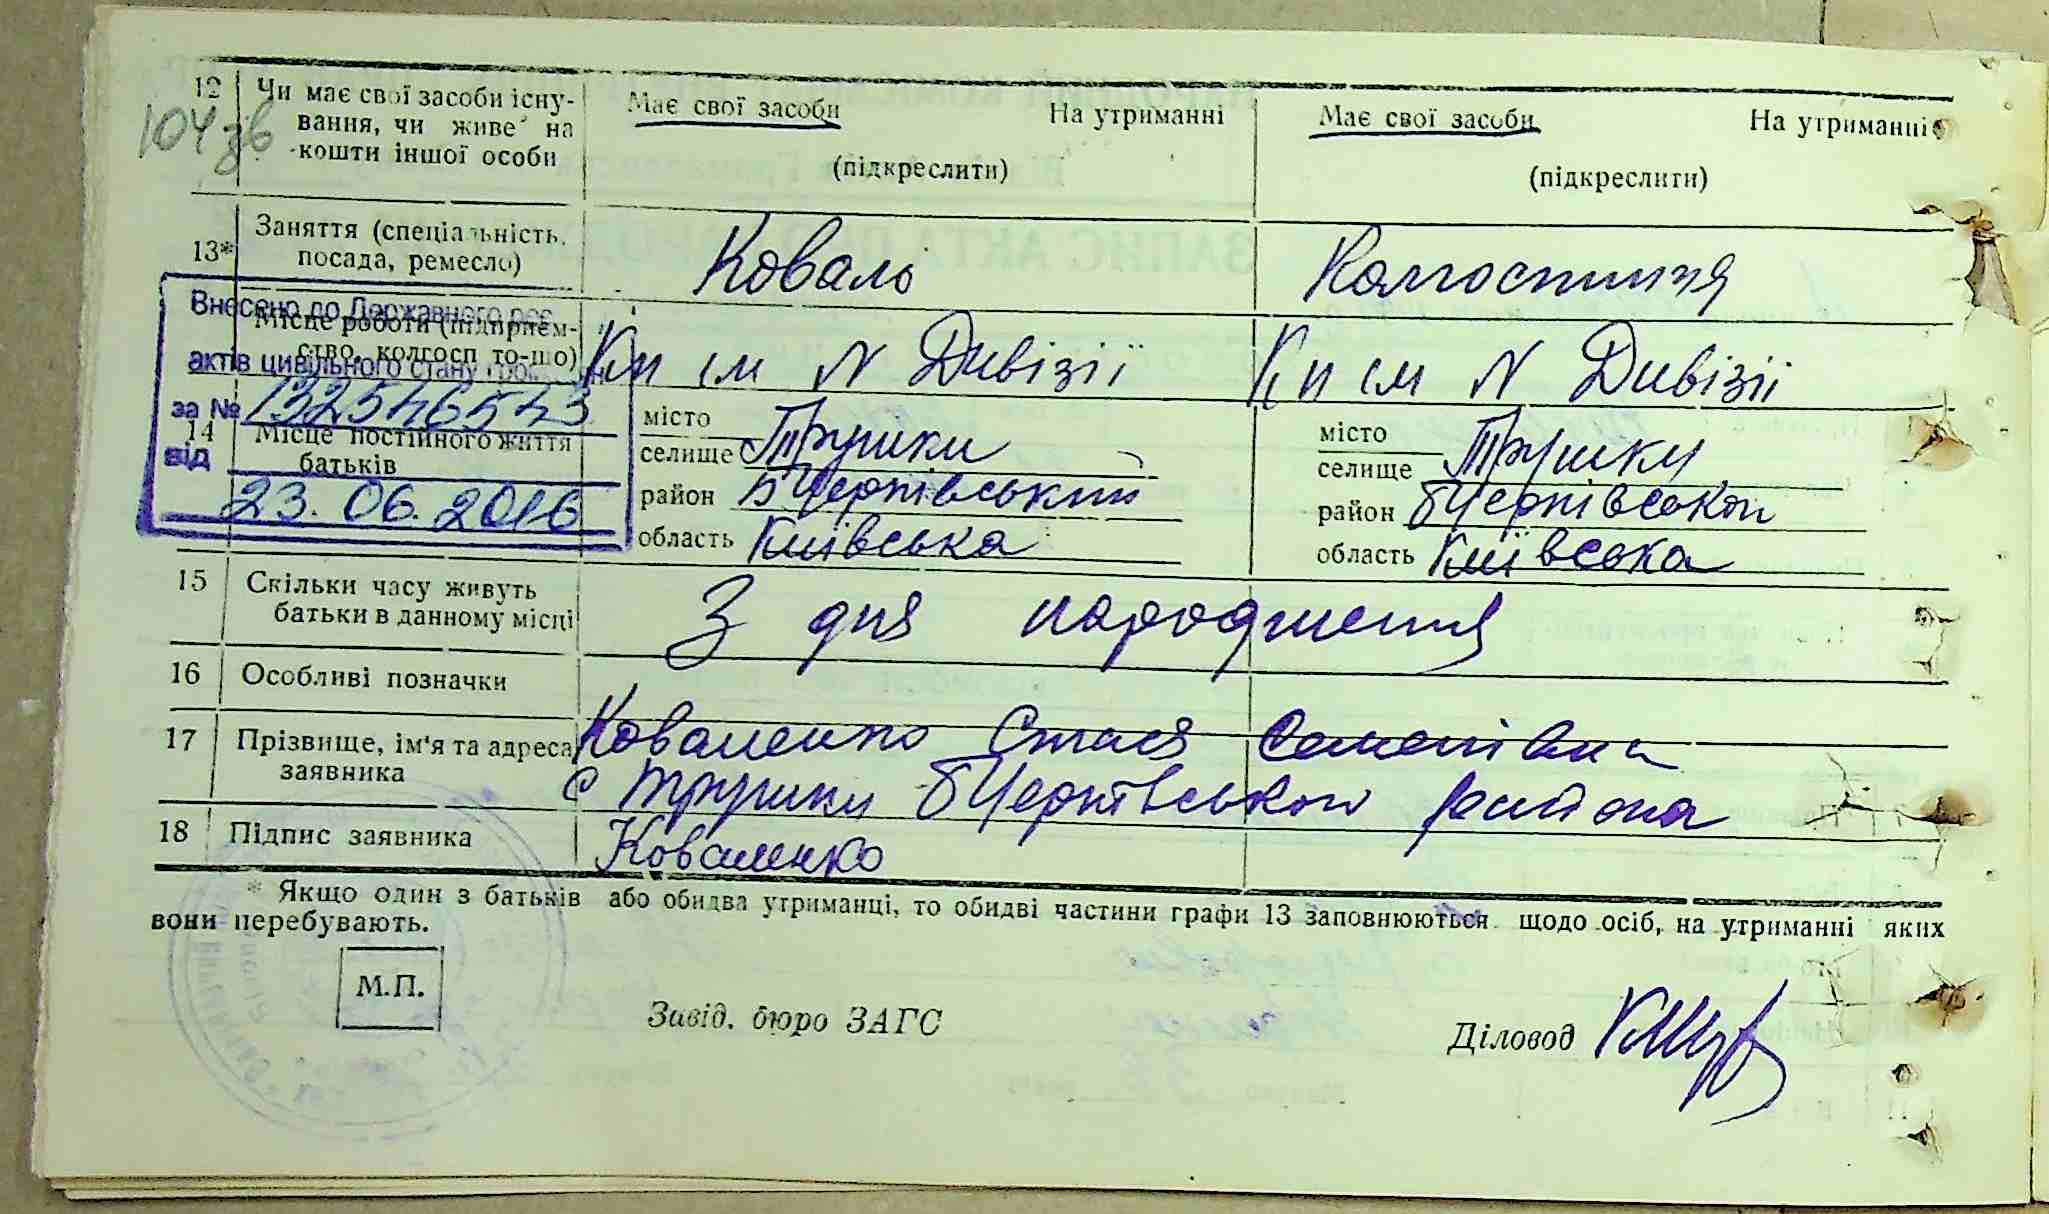 12 Чи має свої засоби існу-
вання, чи живе на
кошти іншої особи
104зв
Має свої засоби На утриманні
(підкреслити)
Має свої засоби На утриманні
(підкреслити)
13* Заняття (спеціальність,
посада, ремесло)
Коваль
Колгоспниця
Місце роботи (підприєм-
ство, колгосп то-що)
Кп ім N Дивізії
Кп ім N Дивізії
Внесено до Державного
актів цивільного стану
за № 132546543
від
23.06.2016
14 Місце постійного життя
батьків
місто
селище Трушки
район БЦерківський
область Київська
місто
селище Трушки
район БЦерківської
область Київська
15 Скільки часу живуть
батьки в данному місці
З дня народження
16 Особливі позначки
17 Прізвище, ім'я та адреса
заявника
Коваленко Стася Семенівна
с Трушки БЦерківської района
18 Підпис заявника
Коваленко
* Якщо один з батьків або обидва утриманці, то обидві частини графи 13 заповнюються щодо осіб, на утриманні яких
вони перебувають.
М.П.
Завід. бюро ЗАГС
Діловод